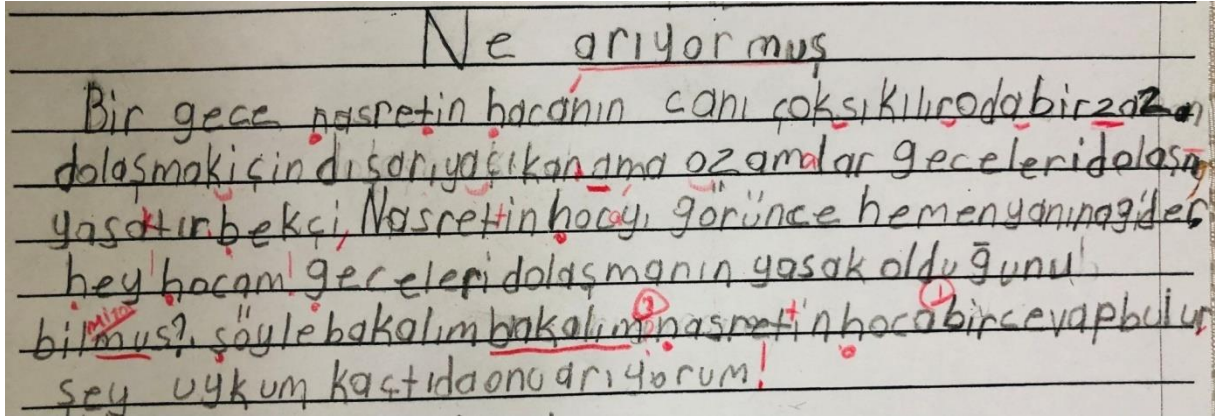 Ne arıyormuş
Bir gece nasretin hocanın canı çoksıkılıroda birzaz
dolaşmakiçindışarıyaçıkanama ozamalar geceleridolaşm
yasaktır.bekçi, Nasrettinhocayı görünce hemenyanınagider
hey hocam! geceleridolaşmanın yasakolduğunu
bilmus?. söylebakalım bakalım nasrettin hocabircevapbulur,
şey uykum kaçtıdaonuarıyorum!